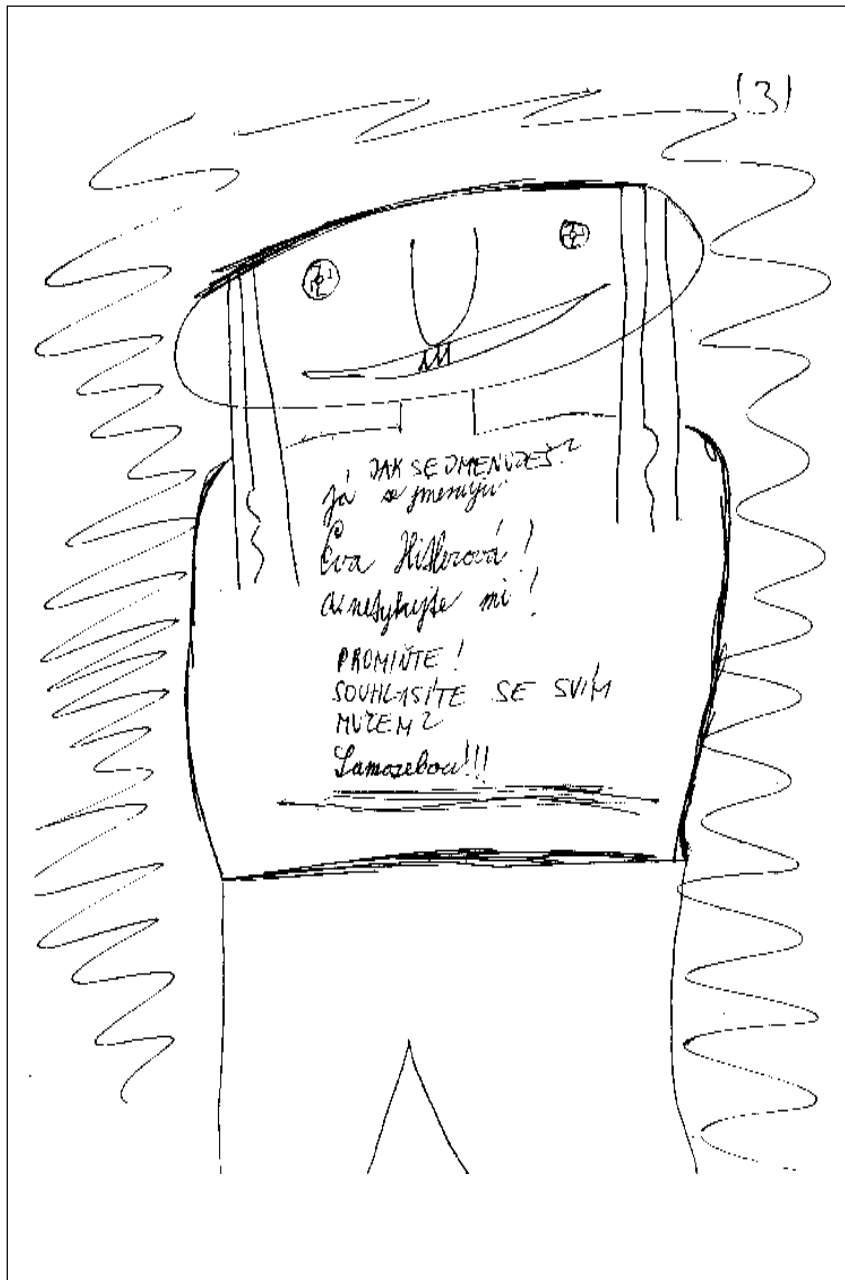 (3)
JAK SE JMENUJEŠ?
já se jmenuji
Eva Hitlerová!
A netykejte mi!
PROMIŇTE!
SOUHLASÍTE SE SVÍM
MUŽEM?
Samozebou!!!